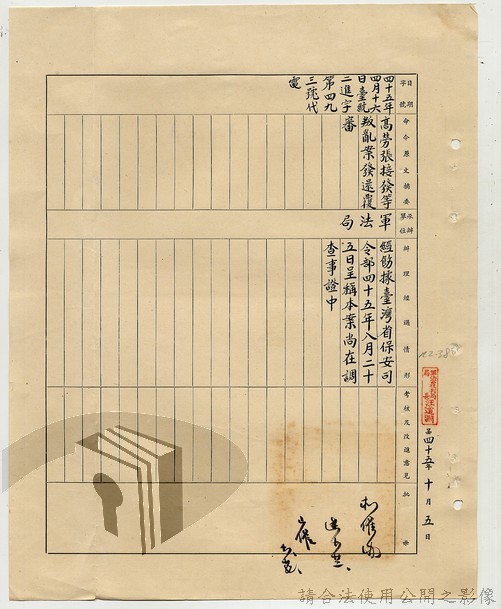 日期
字號
命令原文摘要
承辦
單位
辦理經過情形
考核及改進意見
批示
四十五年
四月十六
日臺統
二進字
第四九
三號代
電
高勞張接發等
叛亂案發還覆
審
軍法局
經飭據臺灣省保安司
令部四十五年八月二十
五日呈稱本案尚在調
查事證中
四十五年十月五日
請合法使用公開之影像